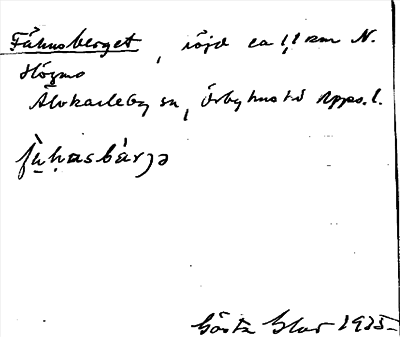 Fähusberget, höjd ca 1,1 km N.
Högmo
Älvkarleby sn, Örbyhus hd Upps. l.
fä̀husbárjə
Gösta Glav 1925